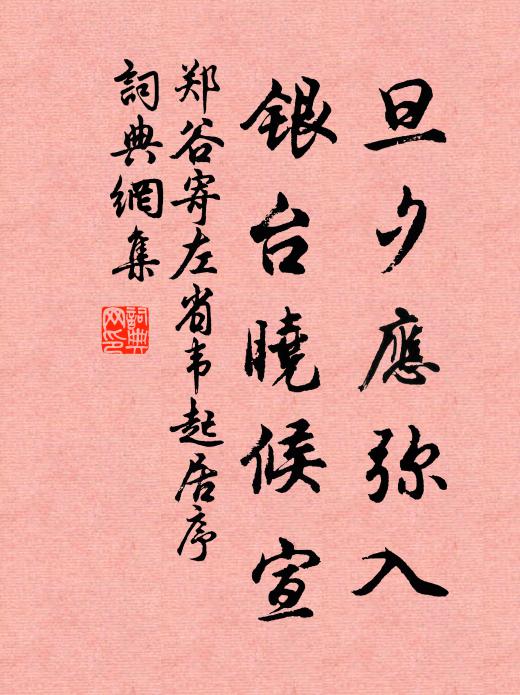 旦夕應弥入
銀台曉候宣
郑谷寄左省韦起居序
詞典網集
詞典網印